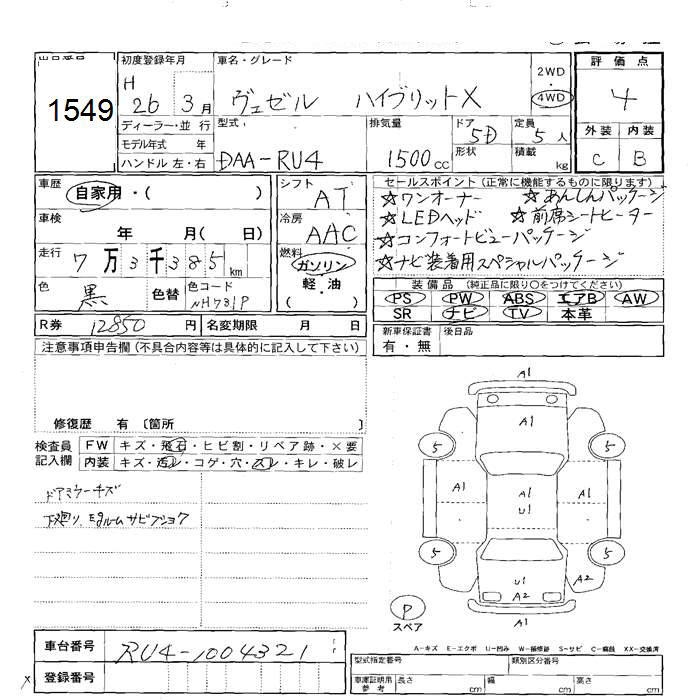 1549
初度登録年月
H 26 3月
車名・グレード
ヴェゼル ハイブリットX
2WD
・
4WD
評価点
4
外装 内装
C B
ディーラー・並行
モデル年式 年
ハンドル 左・右
型式
DAA-RU4
排気量
1500cc
ドア 5D
形状
定員 5人
積載 kg
車歴
自家用・( )
シフト
AT
車検
年 月( 日)
冷房
AAC
走行
7万3千385km
燃料
ガソリン
軽・油
( )
色
黒
色替
色コード
NH731P
セールスポイント(正常に機能するものに限ります)
☆ワンオーナー ☆あんしんパッケージ
☆LEDヘッド ☆前席シートヒーター
☆コンフォートビューパッケージ
☆ナビ装着用スペシャルパッケージ
装備品(純正品に限り〇をつけてください)
PS PW ABS エアB AW
SR ナビ TV 本革
R券 12850円 名変期限 月 日
新車保証書
有・無
後日品
注意事項申告欄(不具合内容等は具体的に記入して下さい)
修復歴 有〔箇所
検査員
記入欄
FW キズ・飛石・ヒビ割・リペア跡・×要
内装 キズ・汚レ・コゲ・穴・スレ・キレ・破レ
ドアミラーキズ
下廻り、Egルームサビフショク
A1
A1
5 5
A1 A1 A1
U1
5 5
U1 A2
A2
A1
P
スペア
A-キズ E-エクボ U-凹み W-補修跡 S-サビ C-腐蝕 XX-交換済
車台番号 RU4-1004321
登録番号
型式指定番号 類別区分番号
車庫証明用
参考
長さ cm 幅 cm 高さ cm